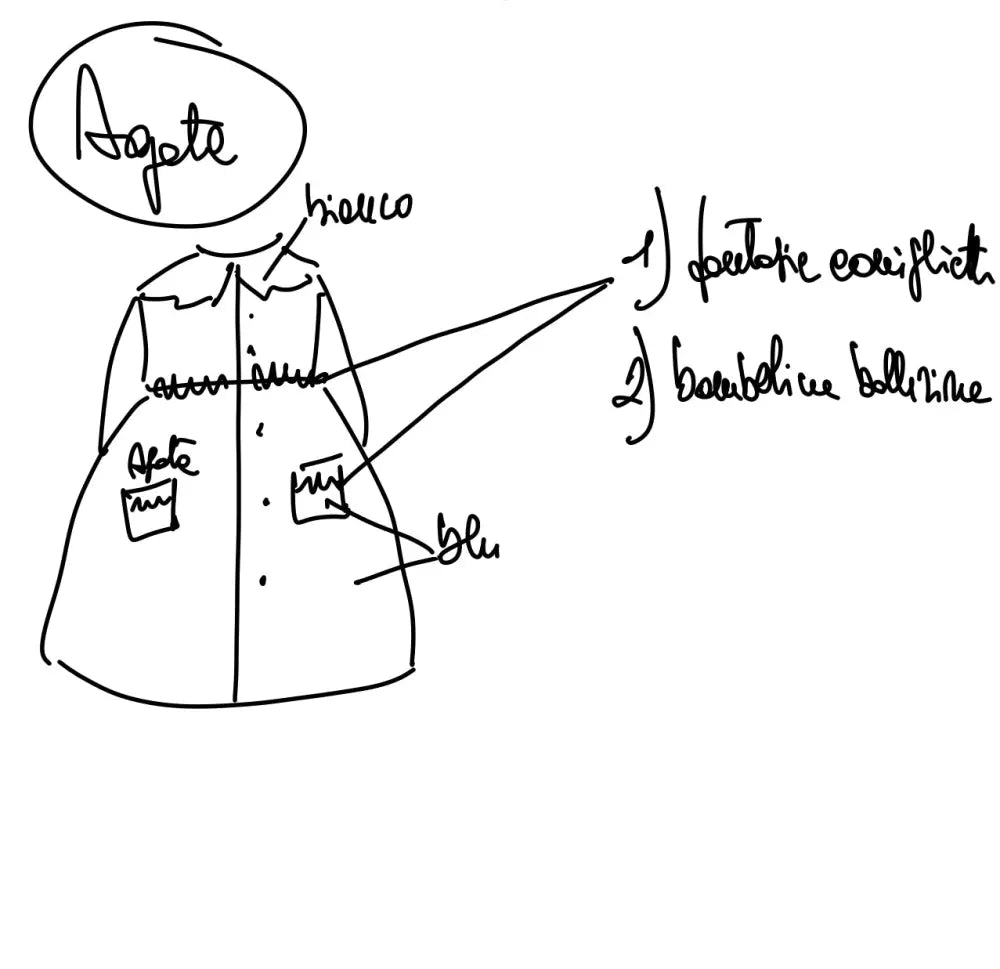 Agata
bianco
1) fantasie coniglietti
2) bamboline ballerine
Agata
blu